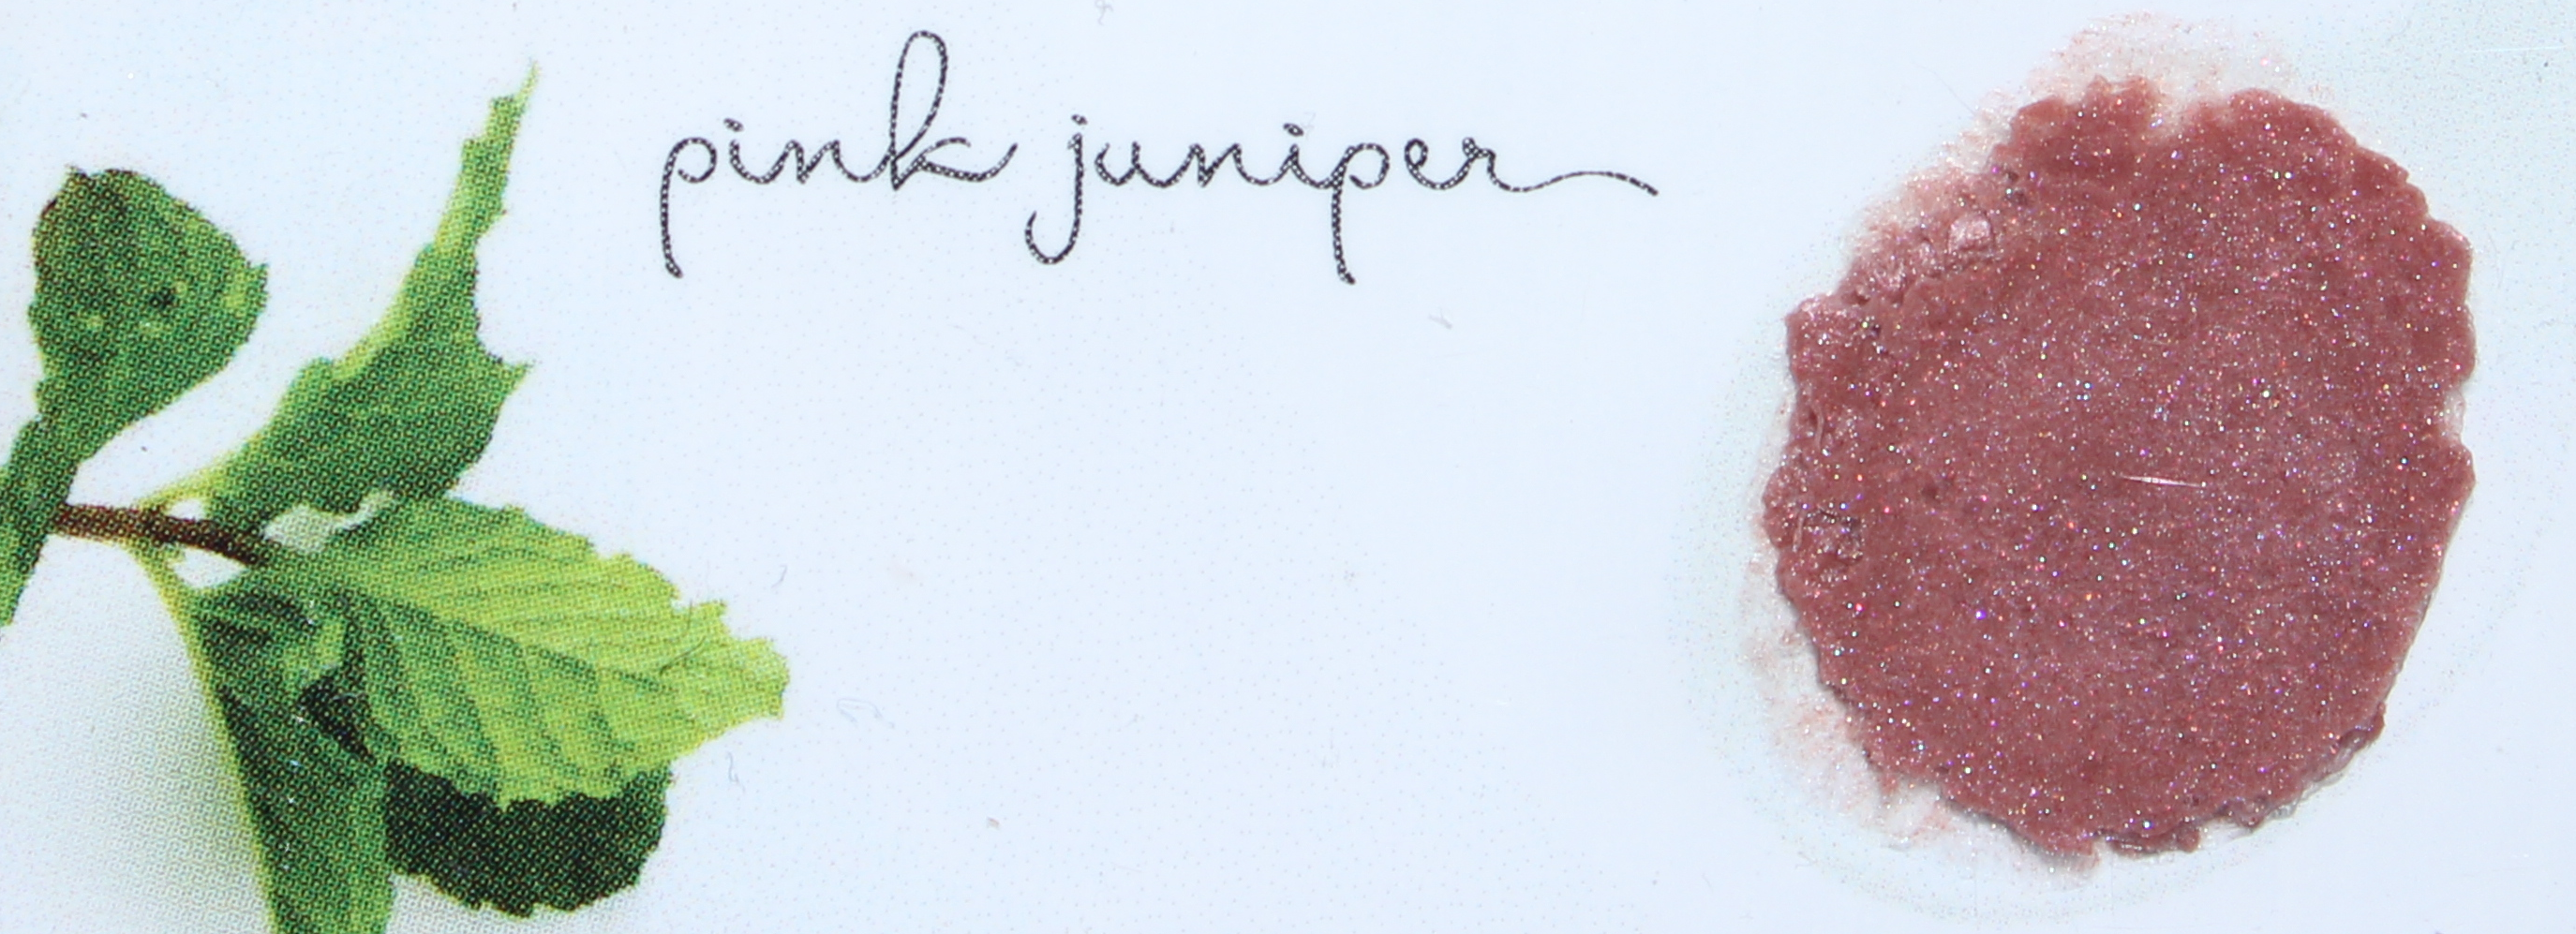 pink juniper